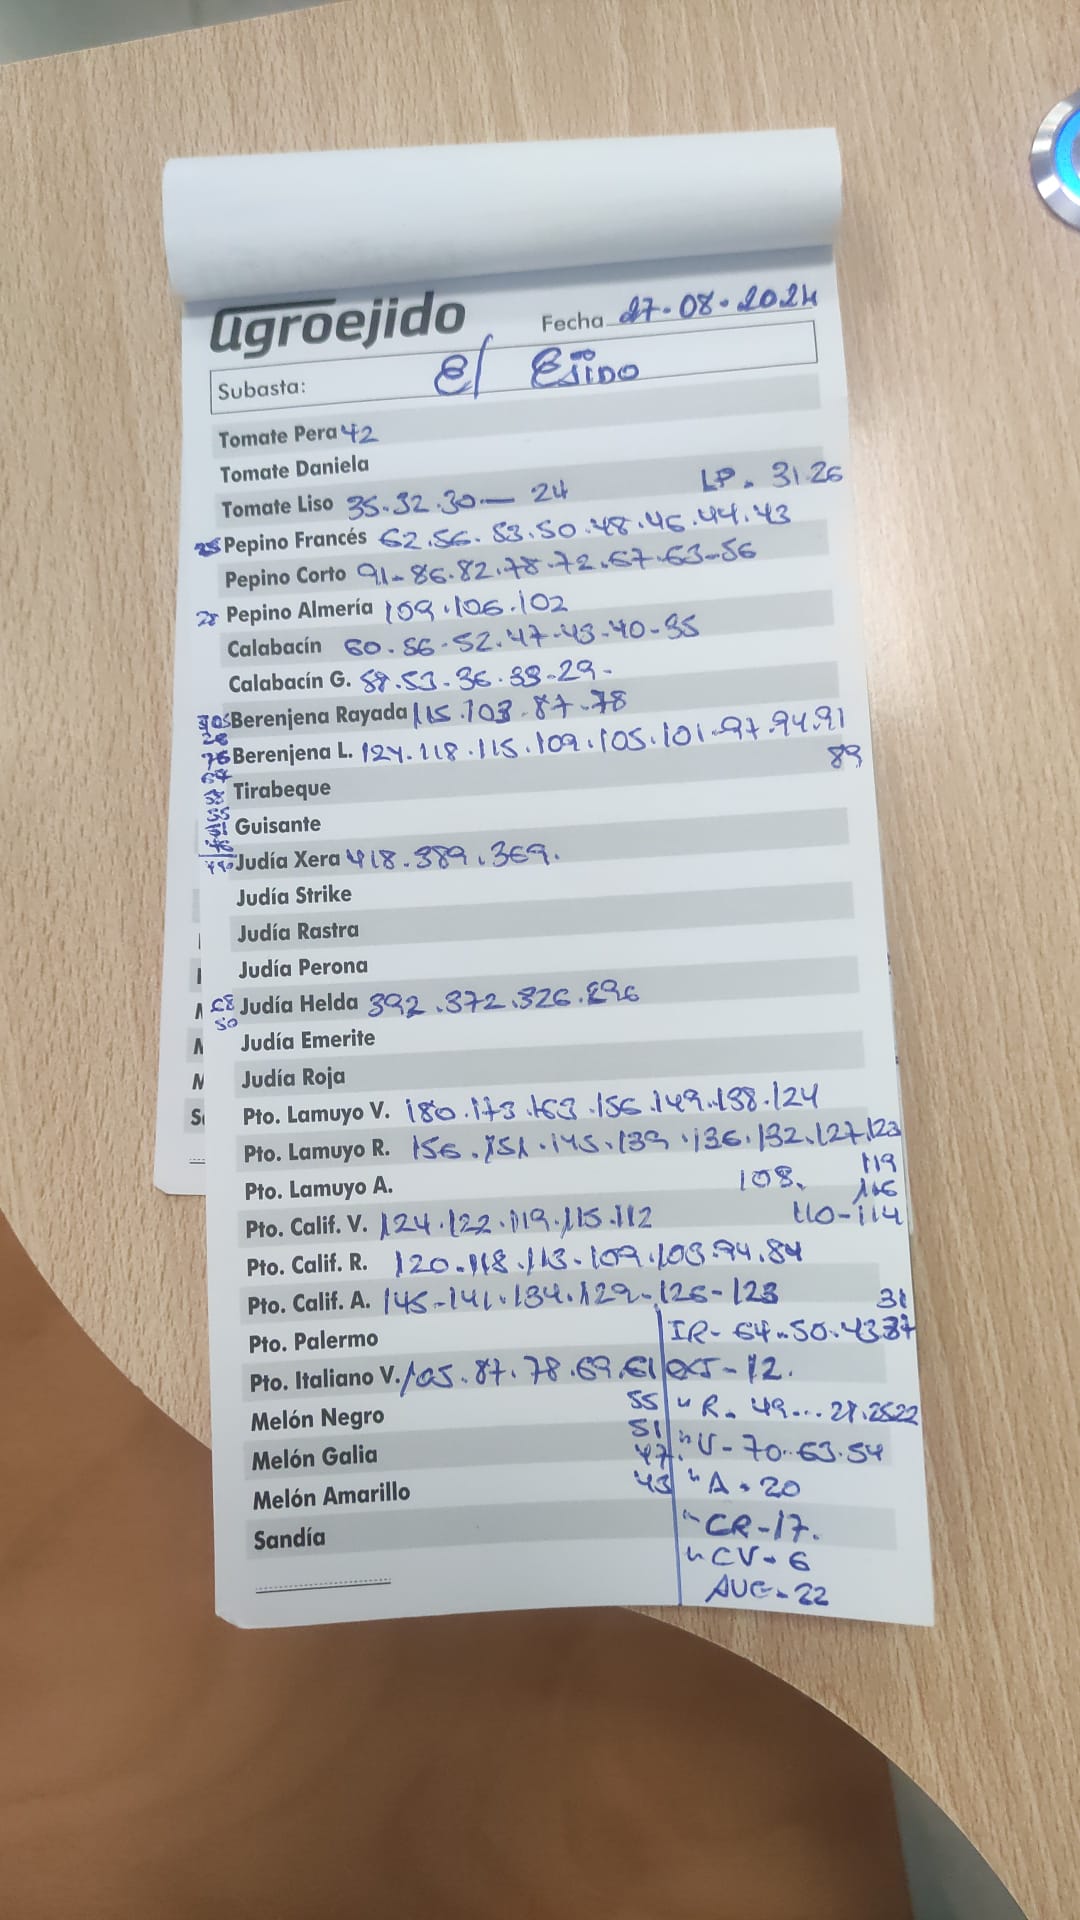 agroejido Fecha 27-08-2024
Subasta: El Ejido
Tomate Pera 42
Tomate Daniela
Tomate Liso 35.32.30— 24 LP. 31.26
Pepino Francés 62.56.53.50.48.46.44.43
Pepino Corto 91-86.82.78.72.67.63-56
28 Pepino Almería 109.106.102
Calabacín 60.56.52.47-43.40-35
Calabacín G. 58.53.36.33-29-
Berenjena Rayada 115.103.87.78
76 Berenjena L. 124.118.115.109.105.101.97.94.91
89
Tirabeque
Guisante
Judía Xera 418.389.369.
Judía Strike
Judía Rastra
Judía Perona
Judía Helda 392.372.326.296
50
Judía Emerite
Judía Roja
Pto. Lamuyo V. 180.173.163.156.149.138.124
Pto. Lamuyo R. 156.151.145.139.136.132.127.123
119
Pto. Lamuyo A. 108. 116
Pto. Calif. V. 124.122.119.115.112 110-114
Pto. Calif. R. 120.118.113-109.103.94.84
Pto. Calif. A. 145-141.134.129-126-123 31
Pto. Palermo IR- 64.50.43.37
Pto. Italiano V. 105.87.78.69.61 OXI-12.
Melón Negro 55 " R. 49... 27.25.22
51
Melón Galia 47 " V-70..63.54
Melón Amarillo 43 " A.20
Sandía " CR-17.
" CV-6
AVE-22